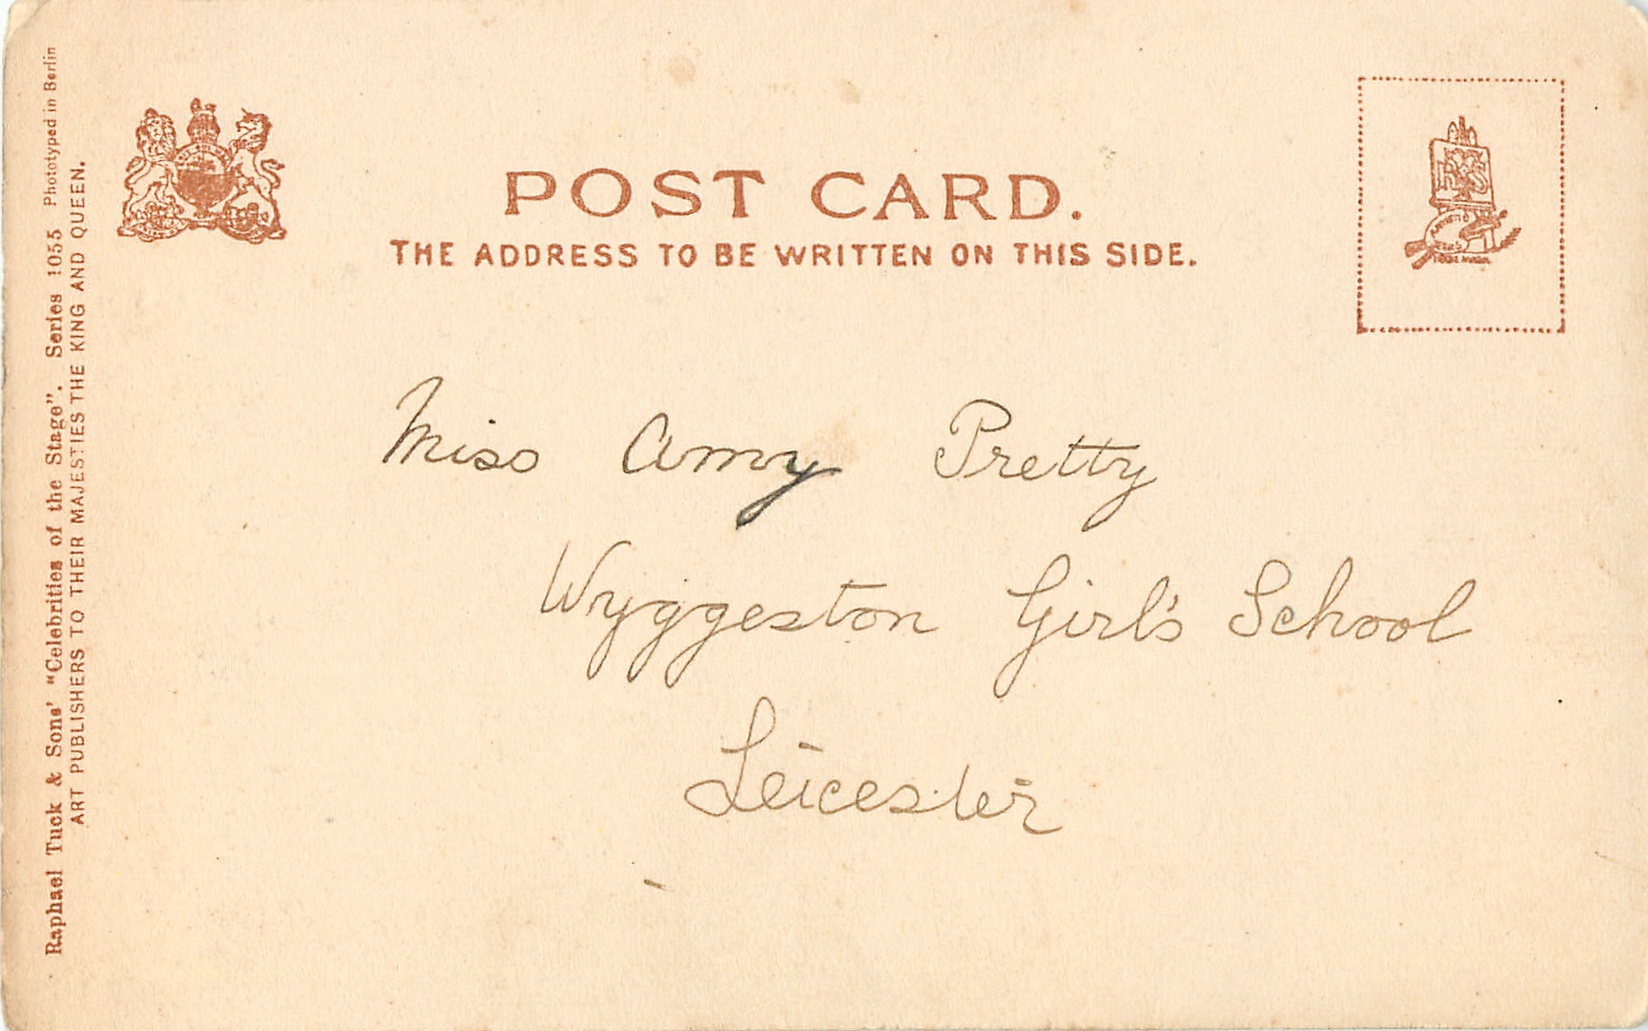 Raphael Tuck & Sons' "Celebrities of the Stage". Series 1055 Phototyped in Berlin
ART PUBLISHERS TO THEIR MAJESTIES THE KING AND QUEEN.
POST CARD.
THE ADDRESS TO BE WRITTEN ON THIS SIDE.
Miss Amy Pretty
Wyggeston Girl's School
Leicester